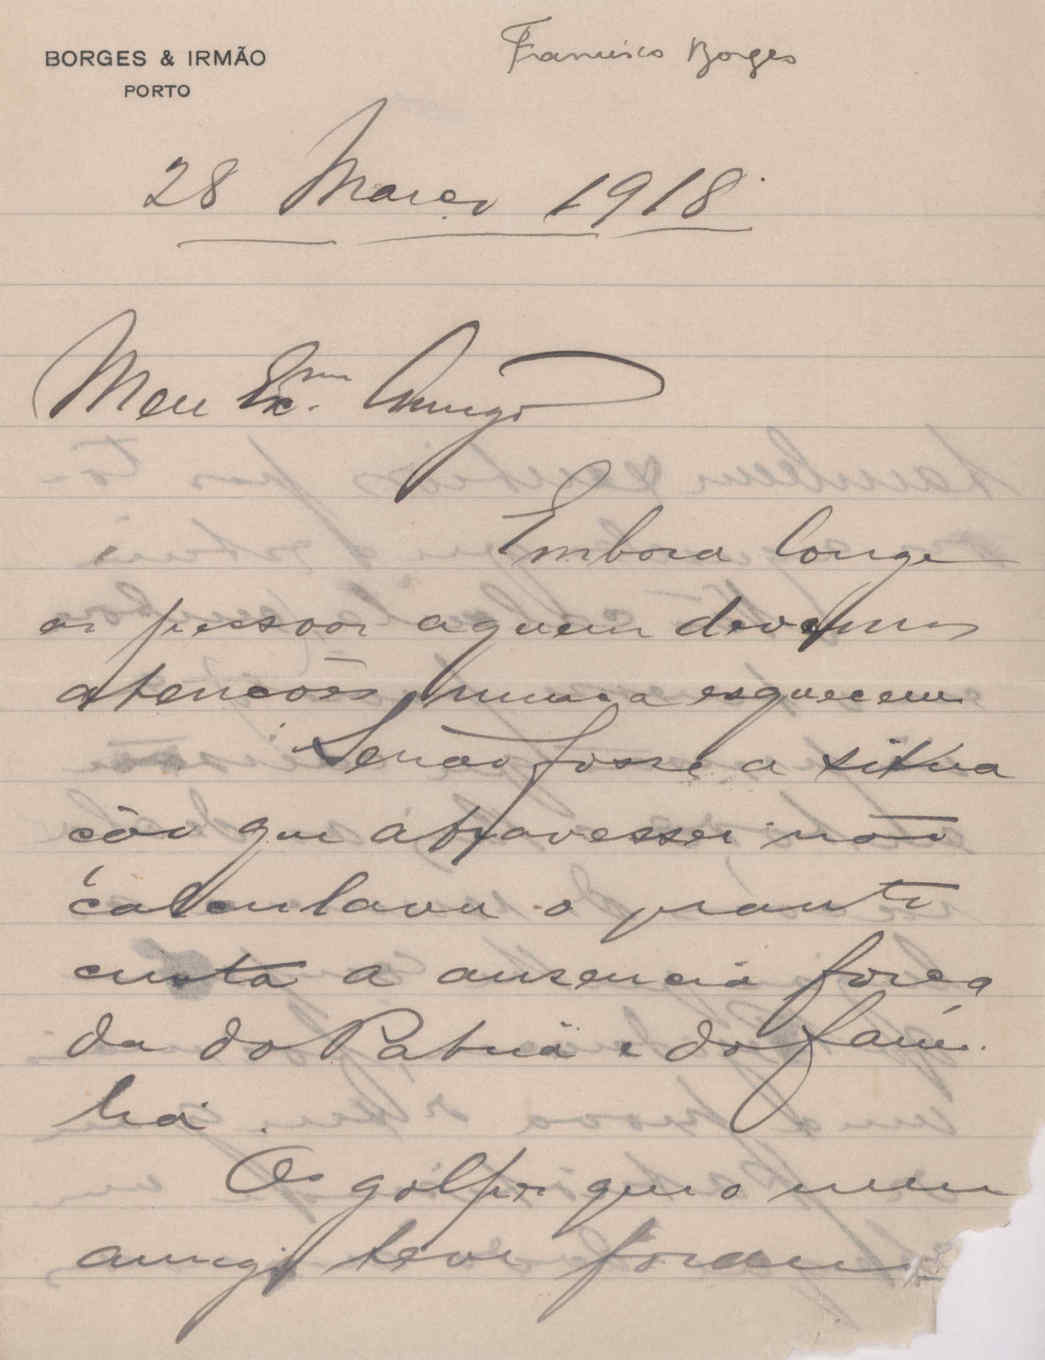 BORGES & IRMÃO
PORTO
Francisco Borges
28 Março 1918.
Meu Exmo. Amigo
Embora longe
as pessoas aquem devemos
atencões, nunca esquecem.
Senão fosse a situa
ção que atravessei não
calculava o quanto
custa a ausencia força
da da Patria e da Fami
lia.
Os golpes que o meu
amigo teve foram